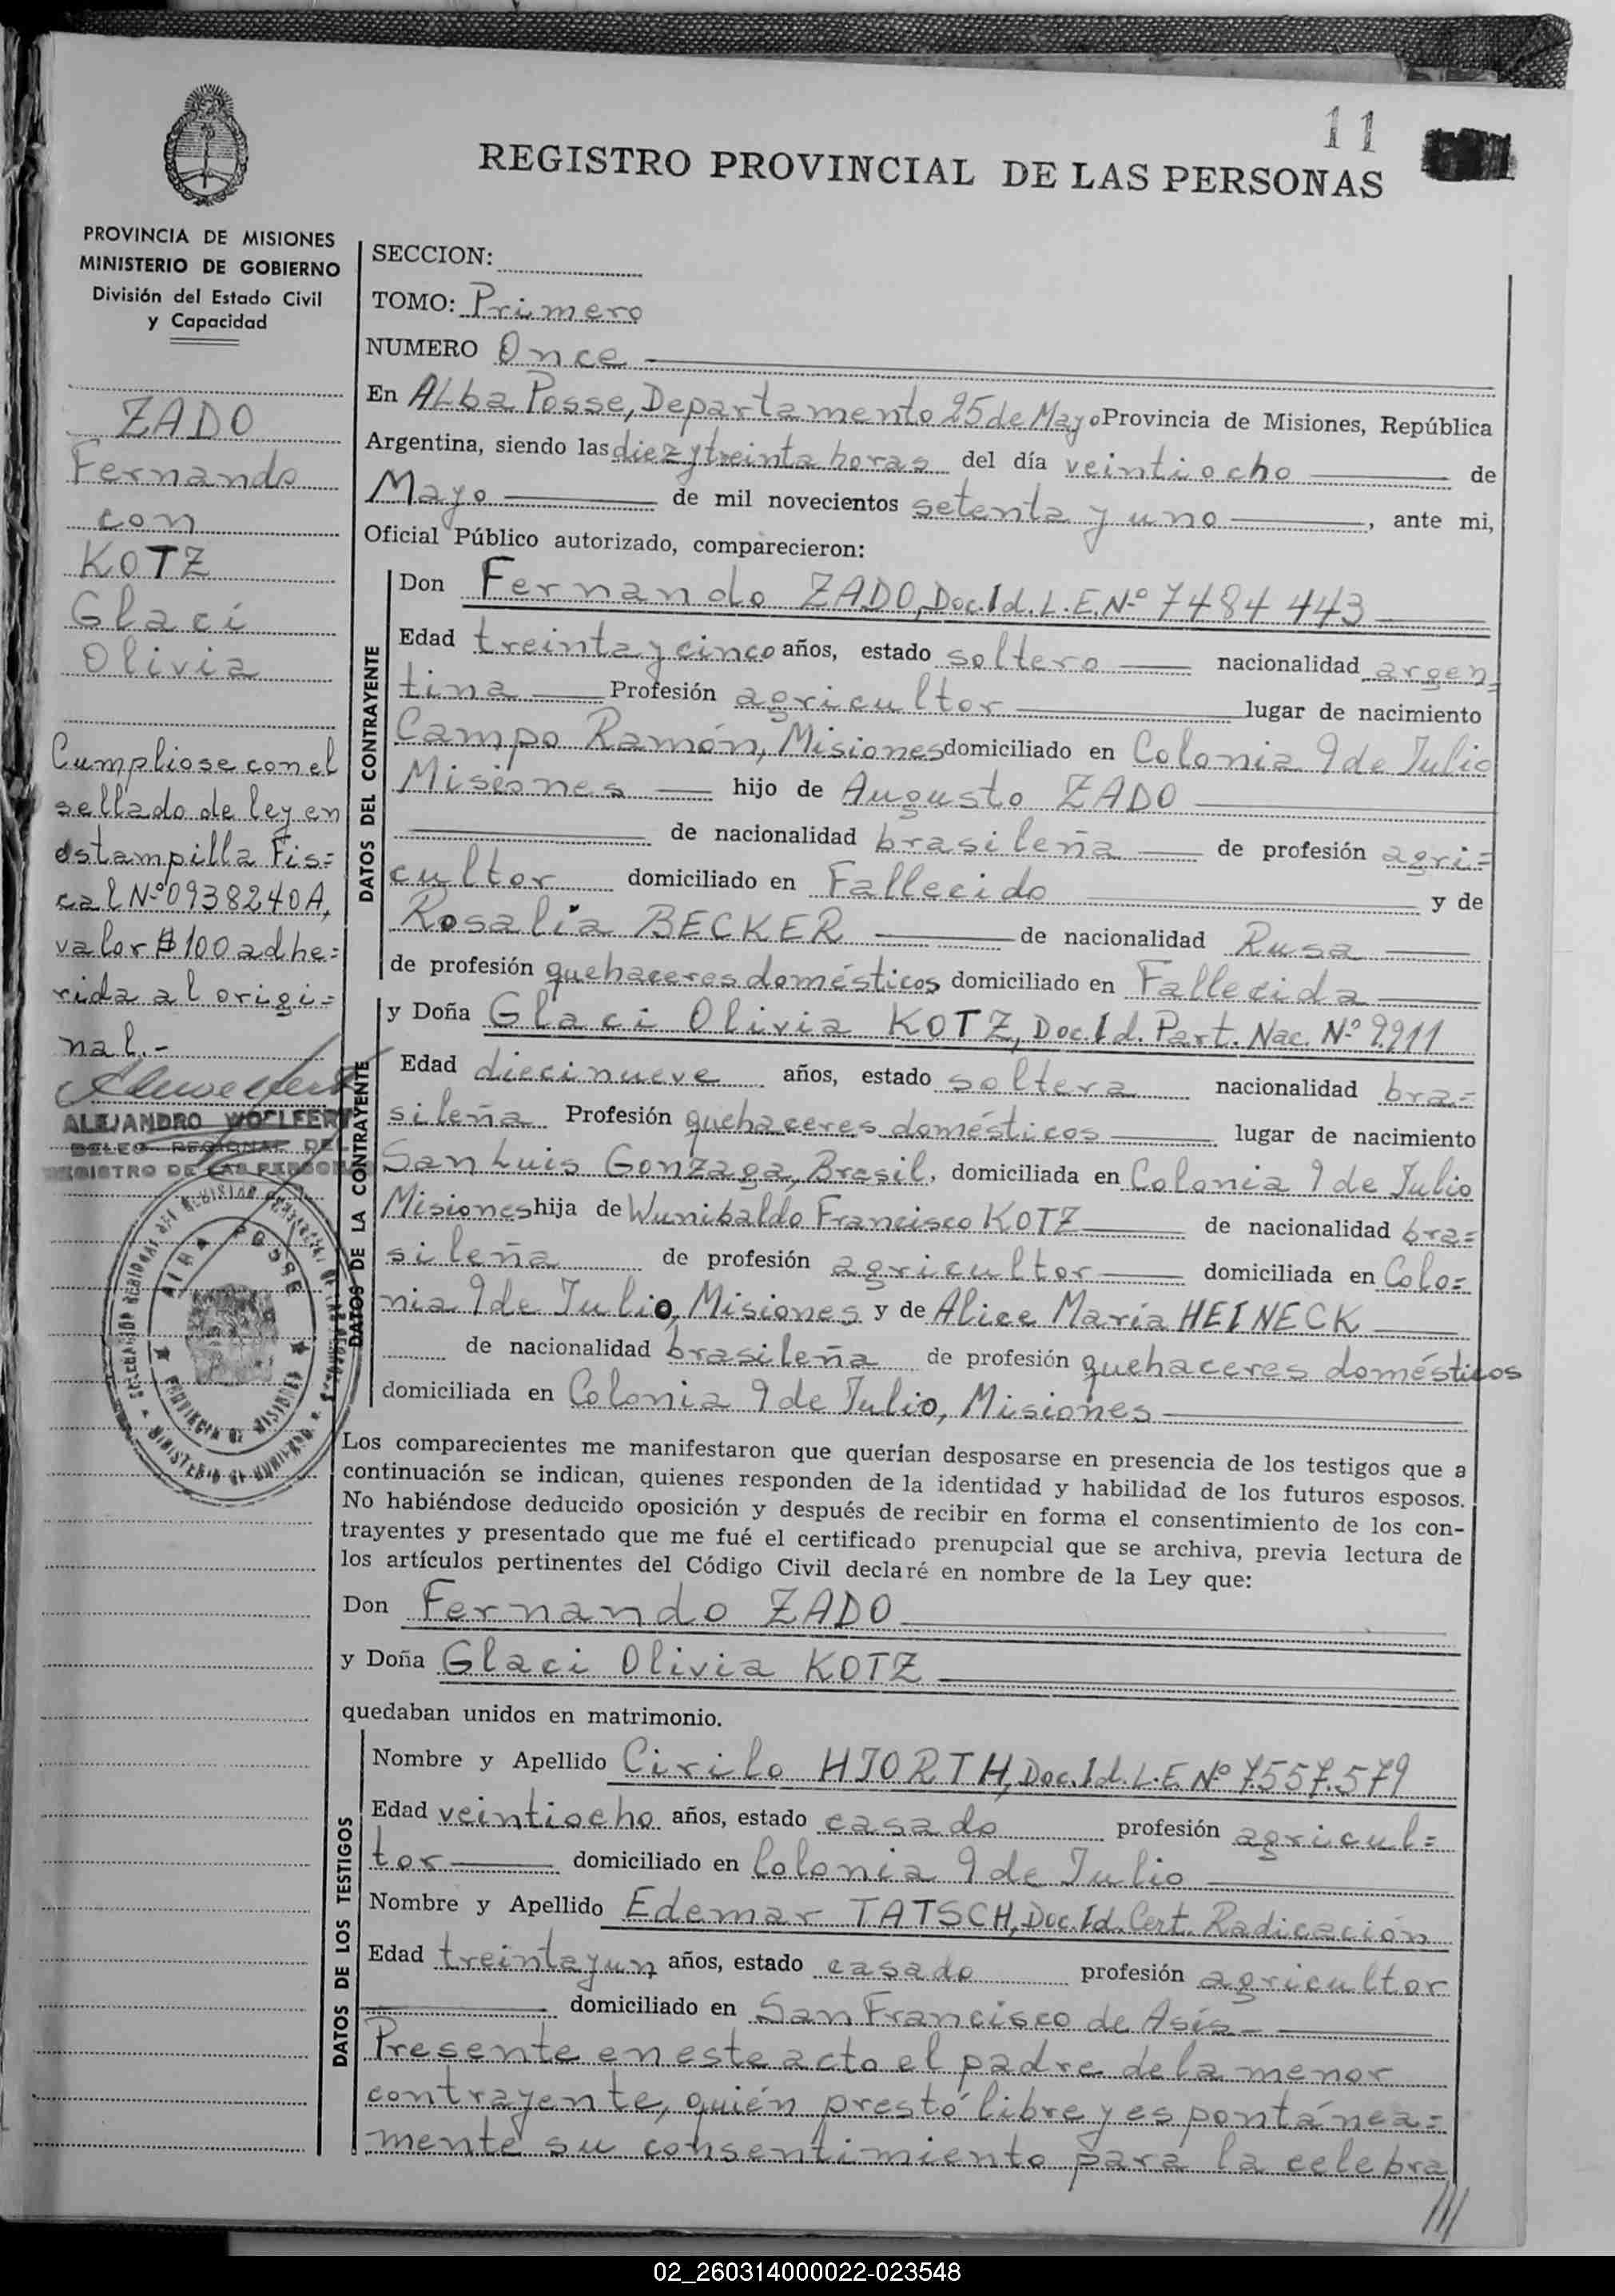 11
REGISTRO PROVINCIAL DE LAS PERSONAS
PROVINCIA DE MISIONES
MINISTERIO DE GOBIERNO
División del Estado Civil
y Capacidad
ZADO
Fernando
con
KOTZ
Glaci
Olivia
Cumpliose con el
sellado de ley en
estampilla Fis=
cal Nº 0938240A,
valor $100 adhe=
rida al origi=
nal.-
ALEJANDRO WOLFERT
DELEG REGIONAL DEL
REGISTRO DE LAS PERSONAS
ALBA POSSE
PROVINCIA DE MISIONES
MINISTERIO DE GOBIERNO
SECCION:
TOMO: Primero
NUMERO Once
En ALba Posse, Departamento 25 de Mayo Provincia de Misiones, República
Argentina, siendo las diez y treinta horas del día veintiocho de
Mayo de mil novecientos setenta y uno, ante mi,
Oficial Público autorizado, comparecieron:
DATOS DEL CONTRAYENTE
Don Fernando ZADO, Doc. Id. L.E. Nº 7484443
Edad treinta y cinco años, estado soltero nacionalidad argen=
tina Profesión agricultor lugar de nacimiento
Campo Ramón, Misiones domiciliado en Colonia 9 de Julio
Misiones hijo de Augusto ZADO
de nacionalidad brasileña de profesión agri=
cultor domiciliado en Fallecido y de
Rosalía BECKER de nacionalidad Rusa
de profesión quehaceres domésticos domiciliado en Fallecida
DATOS DE LA CONTRAYENTE
y Doña Glaci Olivia KOTZ, Doc. Id. Part. Nac. Nº 9.911
Edad diecinueve años, estado soltera nacionalidad bra=
sileña Profesión quehaceres domésticos lugar de nacimiento
San Luis Gonzaga, Brasil, domiciliada en Colonia 9 de Julio
Misiones hija de Wunibaldo Francisco KOTZ de nacionalidad bra=
sileña de profesión agricultor domiciliada en Colo=
nia 9 de Julio, Misiones y de Alice María HEINECK
de nacionalidad brasileña de profesión quehaceres domésticos
domiciliada en Colonia 9 de Julio, Misiones
Los comparecientes me manifestaron que querían desposarse en presencia de los testigos que a
continuación se indican, quienes responden de la identidad y habilidad de los futuros esposos.
No habiéndose deducido oposición y después de recibir en forma el consentimiento de los con-
trayentes y presentado que me fué el certificado prenupcial que se archiva, previa lectura de
los artículos pertinentes del Código Civil declaré en nombre de la Ley que:
Don Fernando ZADO
y Doña Glaci Olivia KOTZ
quedaban unidos en matrimonio.
DATOS DE LOS TESTIGOS
Nombre y Apellido Cirilo HJORTH, Doc. Id. L.E. Nº 7.557.579
Edad veintiocho años, estado casado profesión agricul=
tor domiciliado en Colonia 9 de Julio
Nombre y Apellido Edemar TATSCH, Doc. Id. Cert. Radicación
Edad treinta y un años, estado casado profesión agricultor
domiciliado en San Francisco de Asís-
Presente en este acto el padre de la menor
contrayente, quién prestó libre y espontánea=
mente su consentimiento para la celebra
///
02_260314000022-023548